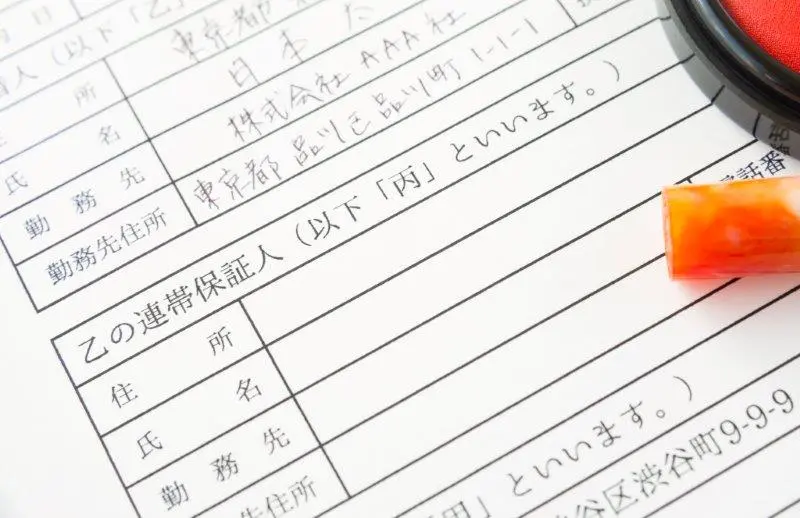 人（以下「乙」
所 東京都
氏 名 日本 太
勤 務 先 株式会社 AAA社
勤務先住所 東京都品川区品川町1-1-1
乙の連帯保証人（以下「丙」といいます。）
住 所
氏 名
勤 務 先
先住所
話番
」といいます。）
谷区渋谷町9-9-9